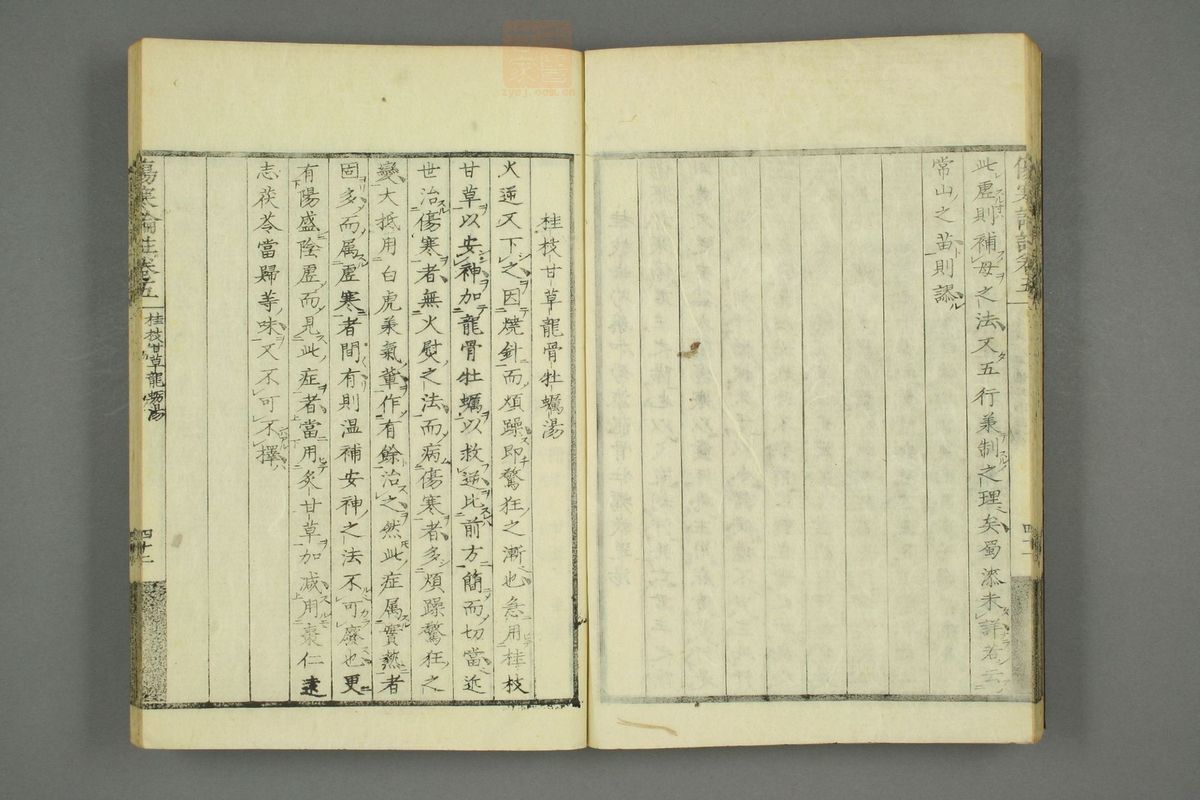 此虚則補母之法又五行兼制之理矣蜀漆未詳若云
常山之苗則謬
傷寒論註卷五
四十一
桂枝甘草龍骨牡蠣湯
火逆又下之因燒針而煩躁即驚狂之漸也急用桂枝
甘草以安神加龍骨牡蠣以救逆比前方簡而切當近
世治傷寒者無火熨之法而病傷寒者多煩躁驚狂之
變大抵用白虎承氣輩作有餘治之然此症属實熱者
固多而属虚寒者間有則温補安神之法不可廢也更
有陽盛陰虚而見此症者當用炙甘草加減用棗仁遠
志茯苓當歸等味又不可不擇
傷寒論註卷五
桂枝甘草龍蠣湯
四十二
zycj.com.cn